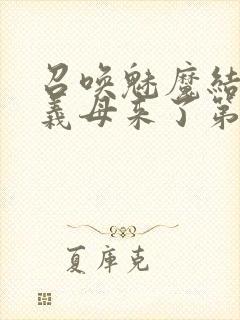 召唤魅魔结
义母来了第
夏库克